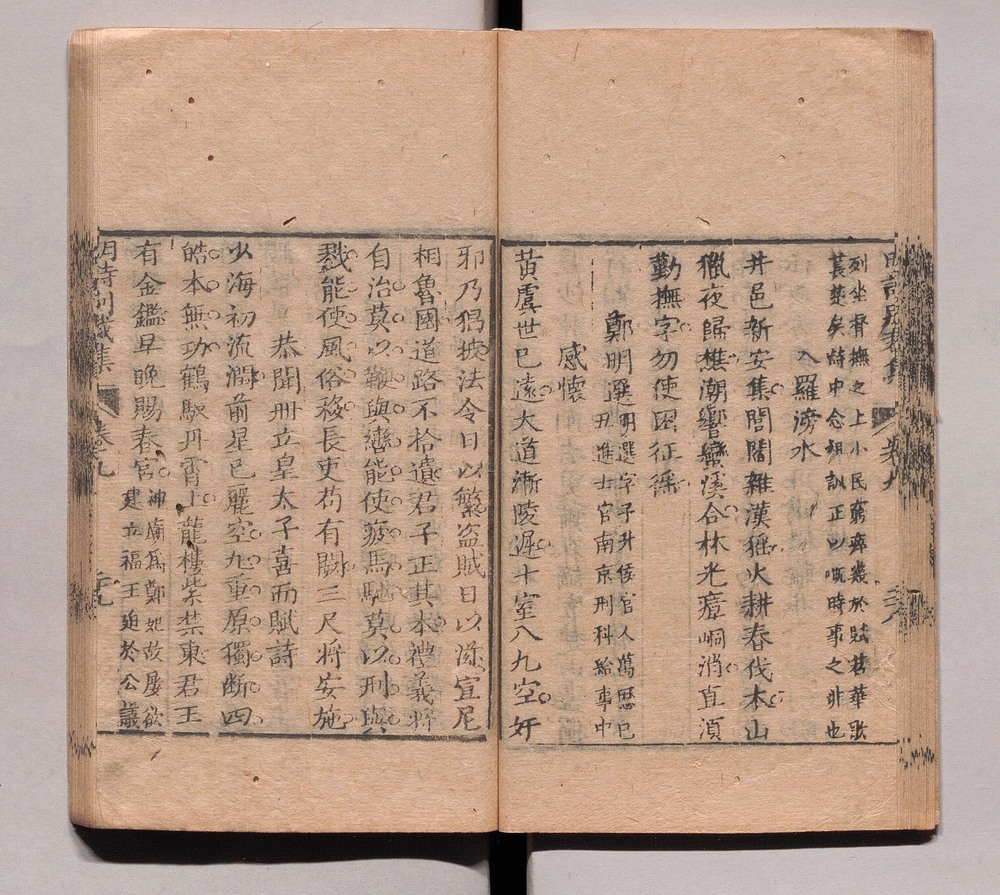 明詩別裁集 卷九
列坐督撫之上小民窮瘁幾於賦萇華歌
萇楚矣詩中念祖訓正以慨時事之非也
入羅滂水
井邑新安集閭閻雜漢猺火耕春伐木山
獵夜歸樵潮響蠻溪合林光瘴峒消直須
勤撫字勿使困征徭
鄭明選
明選字子升侯官人萬歷己
丑進士官南京刑科給事中
感懷
黃虞世已遠大道漸陵遲十室八九空奸
邪乃猖披法令日以繁盜賊日以滋宣尼
相魯國道路不拾遺君子正其本禮義將
自治莫以鞭與轡能使疲馬馳莫以刑與
戮能使風俗移長吏苟有闕三尺將安施
恭聞冊立皇太子喜而賦詩
少海初流潤前星已麗空九重原獨斷四
皓本無功鶴馭丹霄上龍樓紫禁東君王
有金鑑早晚賜春宮
神廟為鄭妃故屢欲
建立福王廹於公議
明詩別裁集 卷九 三九